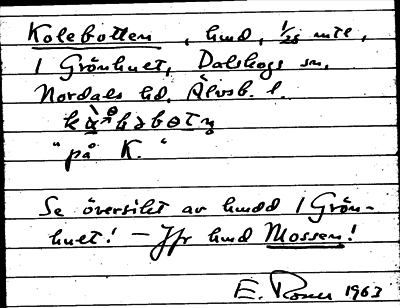 Kolebotten, hmd, 1/25 mtl,
1 Grönhuet, Dalskogs sn,
Nordals hd, Älvsb. l.
"på K."
Se översikt av hmdd 1 Grön-
huet! — Jfr hmd Mossen!
E. Rosen 1963